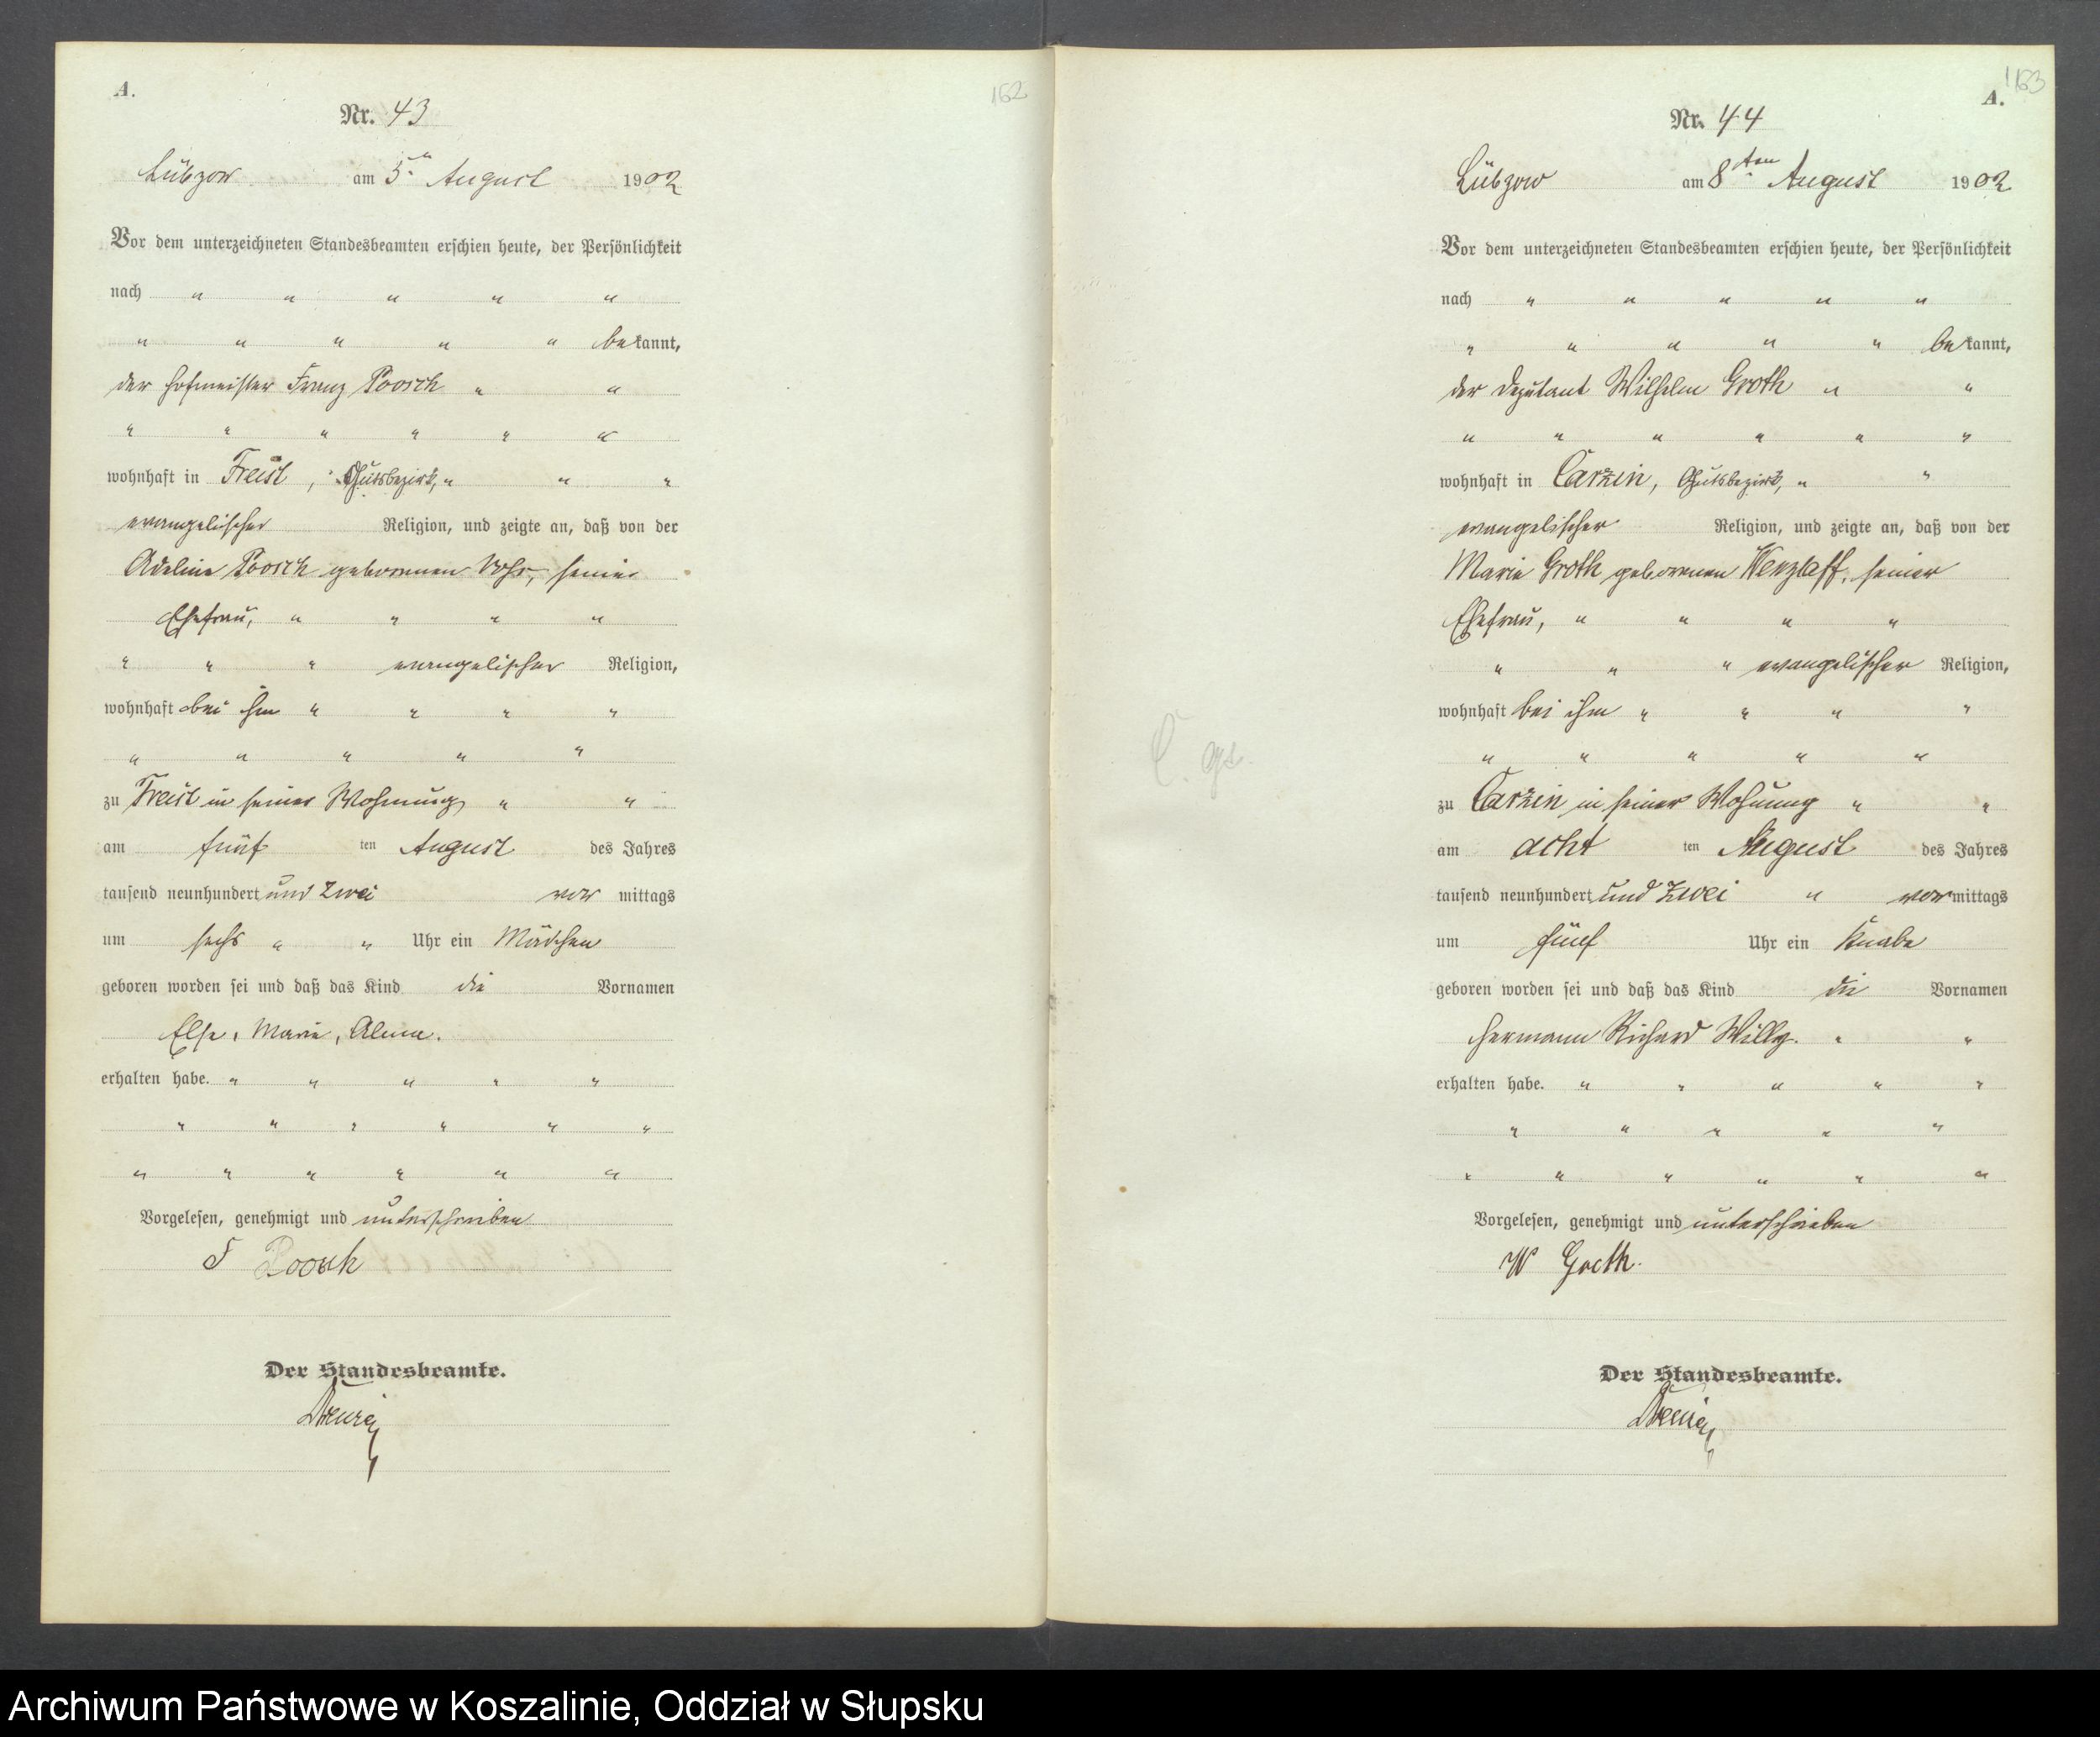 A.
162
Nr. 43
Lübzow am 5ten August 1902
Vor dem unterzeichneten Standesbeamten erschien heute, der Persönlichkeit
nach " " " " "
" " " " " bekannt,
der Hofmeister Franz Poosch " "
" " " " " "
wohnhaft in Freist, Gutsbezirk, " " "
evangelischer Religion, und zeigte an, daß von der
Adeline Poosch gebornen Voss, seiner
Ehefrau, " " " "
" " " evangelischer Religion,
wohnhaft bei ihm " " " "
" " " " "
zu Freist in seiner Wohnung " "
am fünf ten August des Jahres
tausend neunhundert und zwei vor mittags
um sechs " " Uhr ein Mädchen
geboren worden sei und daß das Kind die Vornamen
Else, Marie, Alma.
erhalten habe. " " " " "
" " " " " "
" " " " " "
Vorgelesen, genehmigt und unterschrieben
F Poosch
Der Standesbeamte.
163
A.
Nr. 44
Lübzow am 8ten August 1902
Vor dem unterzeichneten Standesbeamten erschien heute, der Persönlichkeit
nach " " " " "
" " " " " bekannt,
der Deputant Wilhelm Groth " "
" " " " " "
wohnhaft in Carzin, Gutsbezirk, " "
evangelischer Religion, und zeigte an, daß von der
Marie Groth gebornen Wenzlaff, seiner
Ehefrau, " " " "
" " " evangelischer Religion,
wohnhaft bei ihm " " " "
" " " " "
zu Carzin in seiner Wohnung " "
am acht ten August des Jahres
tausend neunhundert und zwei " vor mittags
um fünf Uhr ein Knabe
geboren worden sei und daß das Kind die Vornamen
Hermann Richard Willy. " "
erhalten habe. " " " " "
" " " " "
" " " " " "
Vorgelesen, genehmigt und unterschrieben
W Groth.
Der Standesbeamte.
Archiwum Państwowe w Koszalinie, Oddział w Słupsku